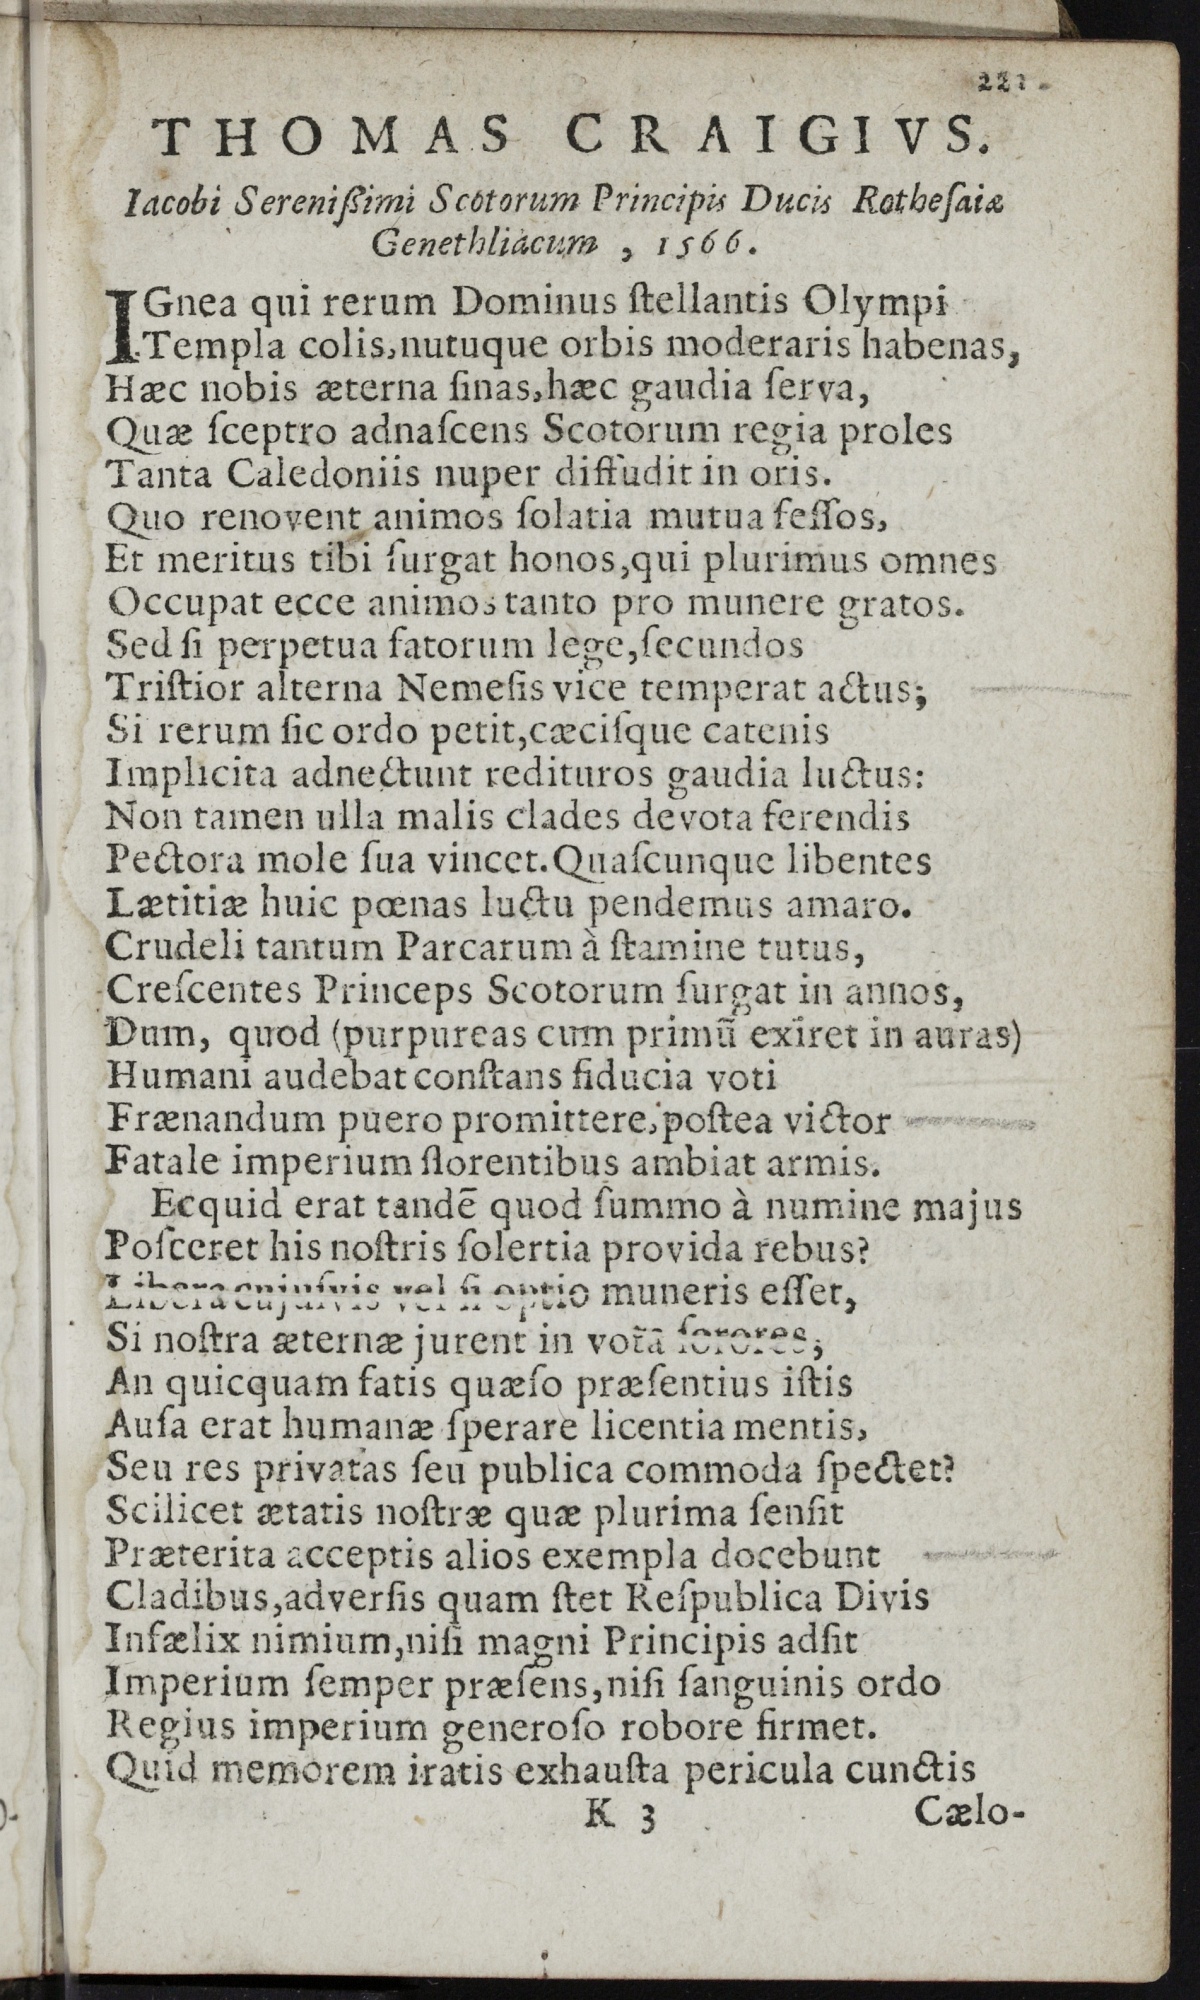 221
THOMAS CRAIGIVS.
Iacobi Sereniſſimi Scotorum Principis Ducis Rotheſaiæ
Genethliacum , 1566.
IGnea qui rerum Dominus ſtellantis Olympi
Templa colis, nutuque orbis moderaris habenas,
Hæc nobis æterna ſinas, hæc gaudia ſerva,
Quæ ſceptro adnaſcens Scotorum regia proles
Tanta Caledoniis nuper diffudit in oris.
Quo renovent animos ſolatia mutua feſſos,
Et meritus tibi ſurgat honos, qui plurimus omnes
Occupat ecce animos tanto pro munere gratos.
Sed ſi perpetua fatorum lege, ſecundos
Triſtior alterna Nemeſis vice temperat actus;
Si rerum ſic ordo petit, cæciſque catenis
Implicita adnectunt redituros gaudia luctus:
Non tamen ulla malis clades devota ferendis
Pectora mole ſua vincet. Quaſcunque libentes
Lætitiæ huic pœnas luctu pendemus amaro.
Crudeli tantum Parcarum à ſtamine tutus,
Creſcentes Princeps Scotorum ſurgat in annos,
Dum, quod (purpureas cum primū exiret in auras)
Humani audebat conſtans fiducia voti
Frænandum puero promittere, poſtea victor
Fatale imperium florentibus ambiat armis.
Ecquid erat tandē quod ſummo à numine majus
Poſceret his noſtris ſolertia provida rebus?
Libera cujuſvis vel ſi optio muneris eſſet,
Si noſtra æternæ jurent in vota ſorores;
An quicquam fatis quæſo præſentius iſtis
Auſa erat humanæ ſperare licentia mentis,
Seu res privatas ſeu publica commoda ſpectet?
Scilicet ætatis noſtræ quæ plurima ſenſit
Præterita acceptis alios exempla docebunt
Cladibus, adverſis quam ſtet Reſpublica Divis
Infælix nimium, niſi magni Principis adſit
Imperium ſemper præſens, niſi ſanguinis ordo
Regius imperium generoſo robore firmet.
Quid memorem iratis exhauſta pericula cunctis
K 3 Cælo-